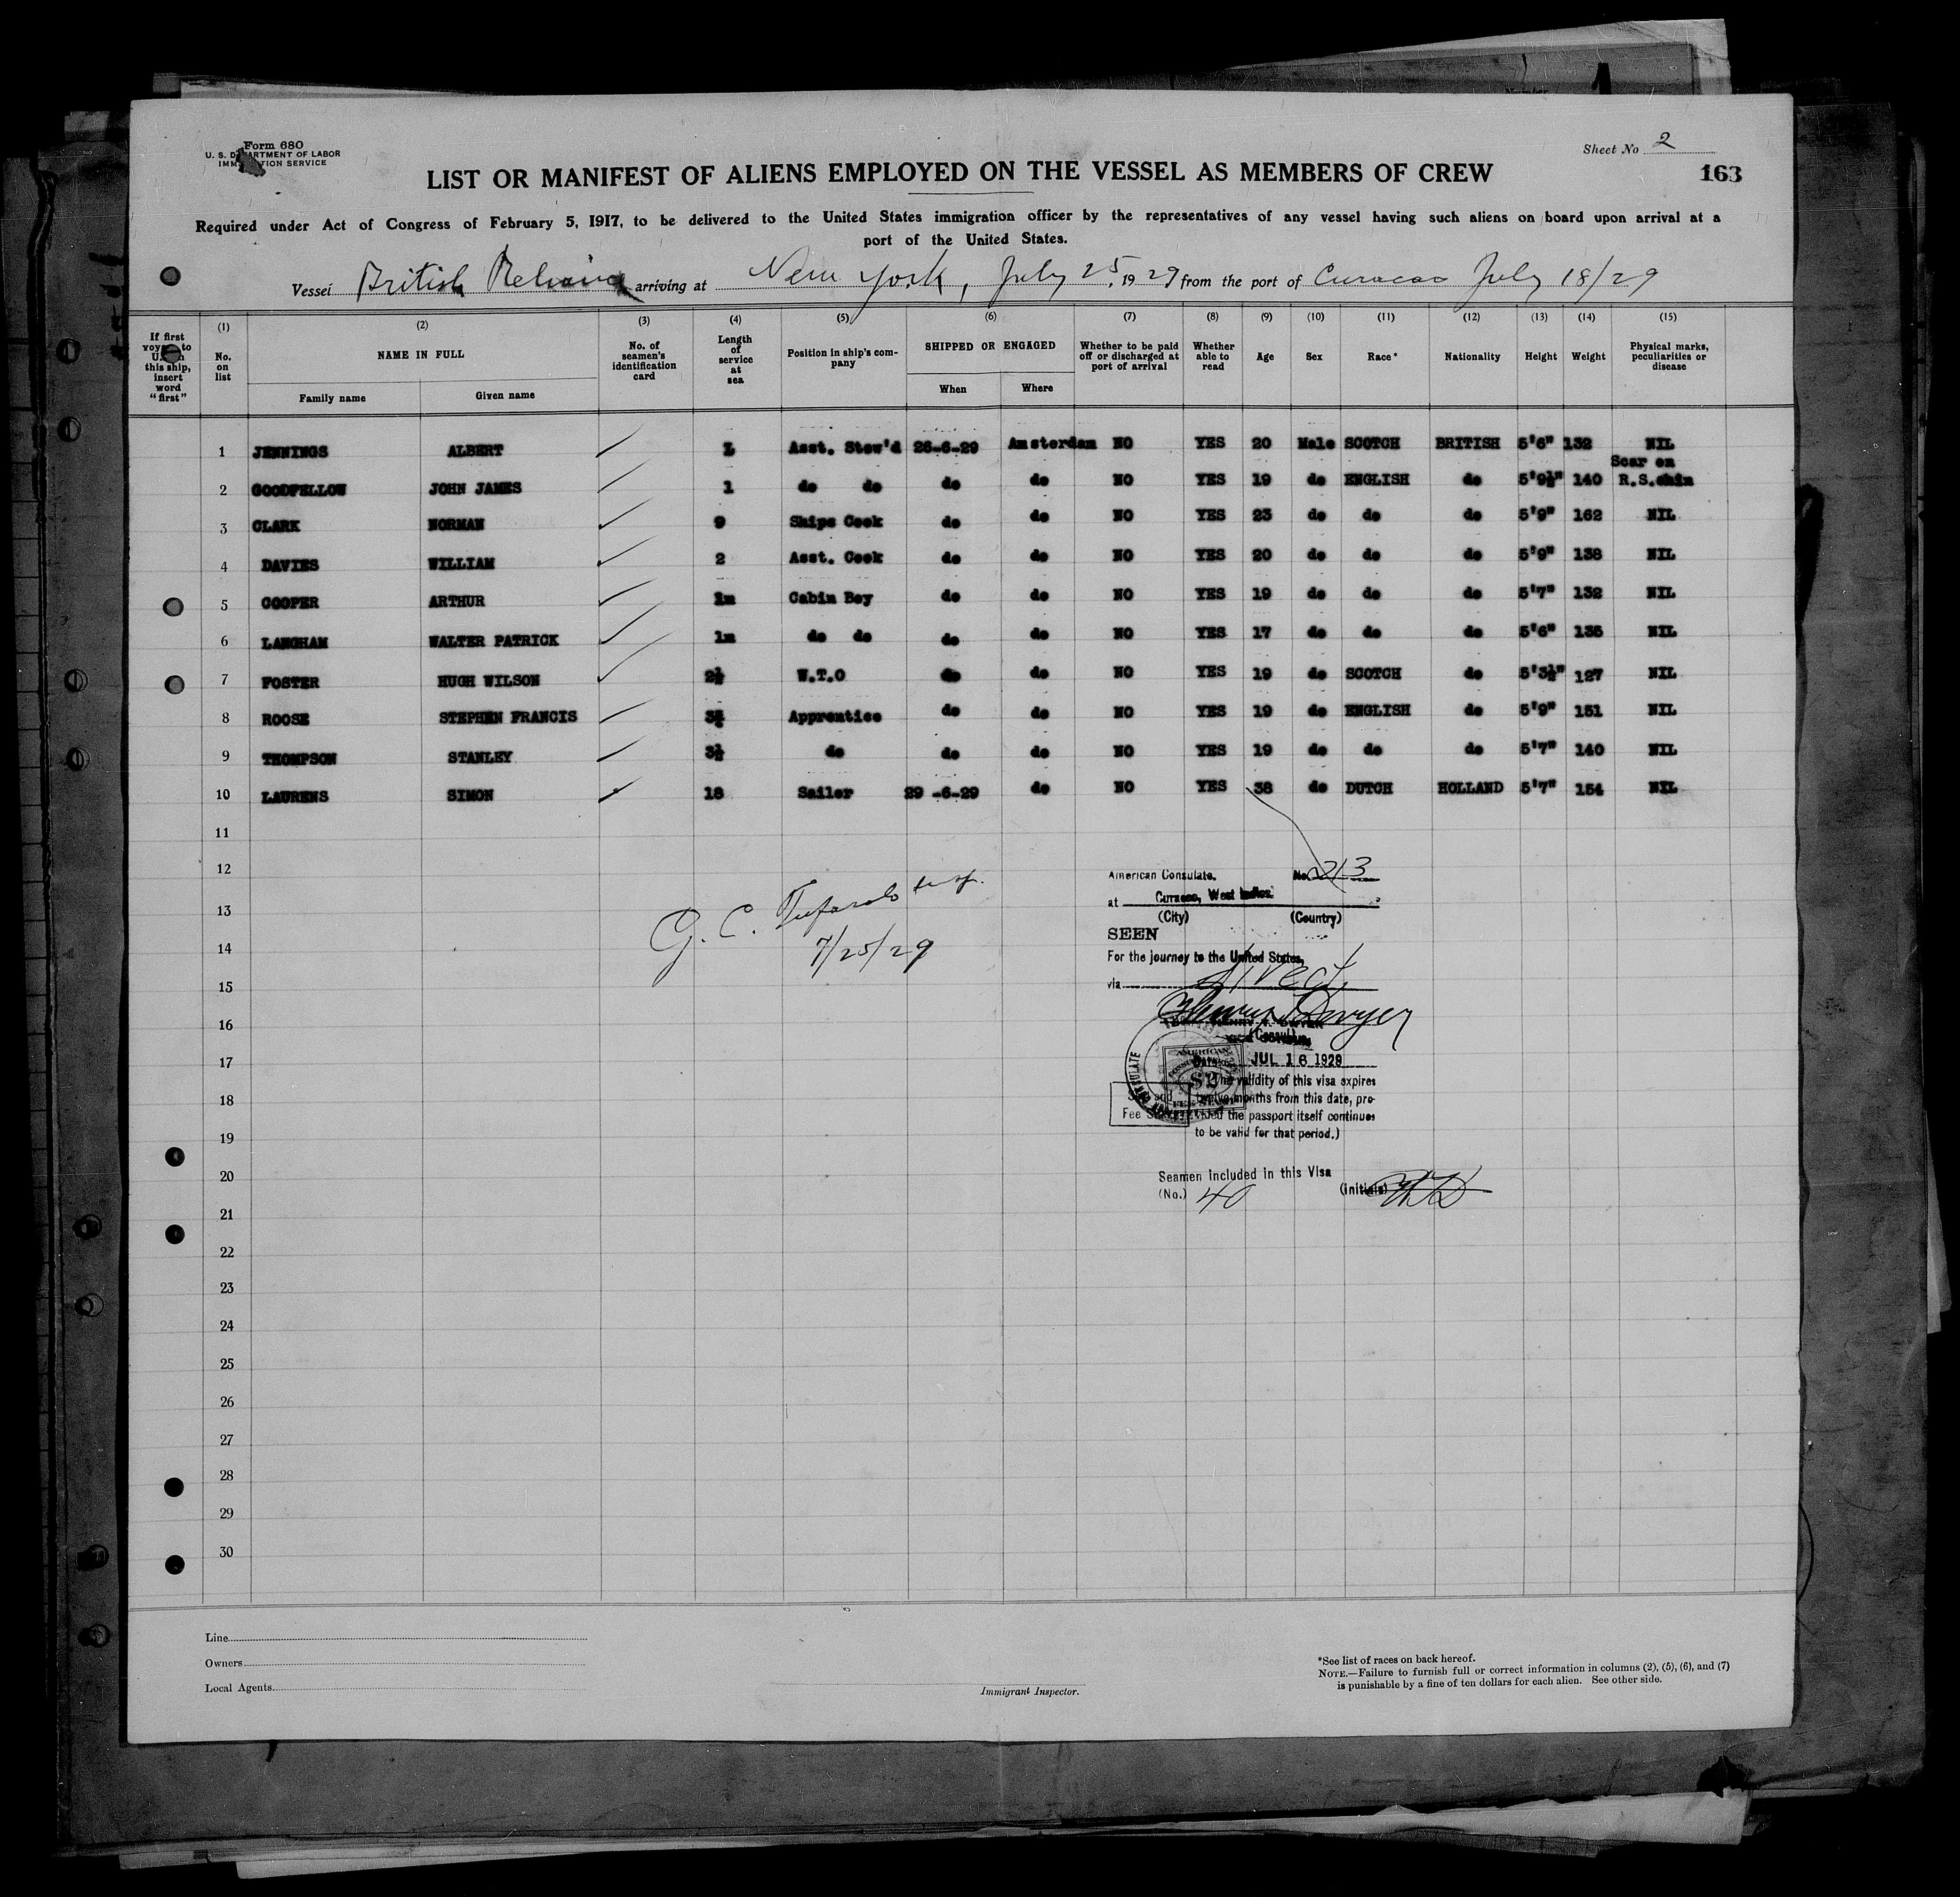 Form 680
U. S. DEPARTMENT OF LABOR
IMMIGRATION SERVICE
Sheet No 2
163
LIST OR MANIFEST OF ALIENS EMPLOYED ON THE VESSEL AS MEMBERS OF CREW
Required under Act of Congress of February 5, 1917, to be delivered to the United States immigration officer by the representatives of any vessel having such aliens on board upon arrival at a
port of the United States.
Vessel British arriving at New York, July 25, 1929 from the port of Curacao July 18/29
If first voyage to U.S. in this ship, insert word "first" (1) No. on list (2) NAME IN FULL Family name Given name (3) No. of seamen's identification card (4) Length of service at sea (5) Position in ship's company (6) SHIPPED OR ENGAGED When Where (7) Whether to be paid off or discharged at port of arrival (8) Whether able to read (9) Age (10) Sex (11) Race* (12) Nationality (13) Height (14) Weight (15) Physical marks, peculiarities or disease
1 JENNINGS ALBERT Asst. Stew'd 26-6-29 Amsterdam NO YES 20 Male SCOTCH BRITISH 5'6" 132 NIL
2 GOODFELLOW JOHN JAMES 1 do do do do NO YES 19 do ENGLISH do 5'9½" 140 Scar on R.S.chin
3 CLARK NORMAN 9 Ships Cook do do NO YES 23 do do do 5'9" 162 NIL
4 DAVIES WILLIAM 2 Asst. Cook do do NO YES 20 do do do 5'9" 138 NIL
5 COOPER ARTHUR 1m Cabin Boy do do NO YES 19 do do do 5'7" 132 NIL
6 LANGHAM WALTER PATRICK 1m do do do do NO YES 17 do do do 5'6" 135 NIL
7 FOSTER HUGH WILSON 2½ W.T.O do do NO YES 19 do SCOTCH do 5'3½" 127 NIL
8 ROOSE STEPHEN FRANCIS Apprentice do do NO YES 19 do ENGLISH do 5'9" 151 NIL
9 THOMPSON STANLEY 3½ do do do NO YES 19 do do do 5'7" 140 NIL
10 LAURENS SIMON 18 Sailor 29 -6-29 do NO YES 38 do DUTCH HOLLAND 5'7" 154 NIL
11
12
13
14
15
16
17
18
19
20
21
22
23
24
25
26
27
28
29
30
G. C.
7/25/29
American Consulate. No. 213
at Curacao, West Indies.
(City) (Country)
SEEN
For the journey to the United States,
via direct
Henry T. Dwyer
HENRY T. DWYER
(Consul)
JUL 16 1929
The validity of this visa expires
twelve months from this date, pro-
vided the passport itself continues
to be valid for that period.)
Seamen Included in this Visa
(No.) 40 (initials) HTD
Line
Owners
Local Agents
Immigrant Inspector.
*See list of races on back hereof.
NOTE.—Failure to furnish full or correct information in columns (2), (5), (6), and (7)
is punishable by a fine of ten dollars for each alien. See other side.